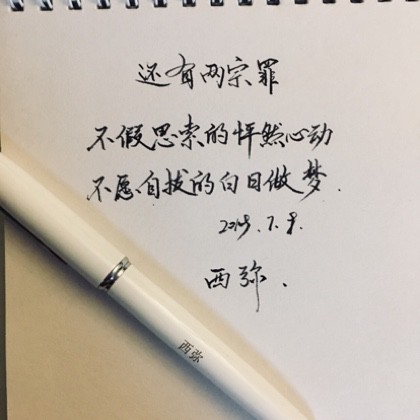 还有两宗罪
不假思索的怦然心动
不愿自拔的白日做梦.
2015.7.9.
西弥.
西弥